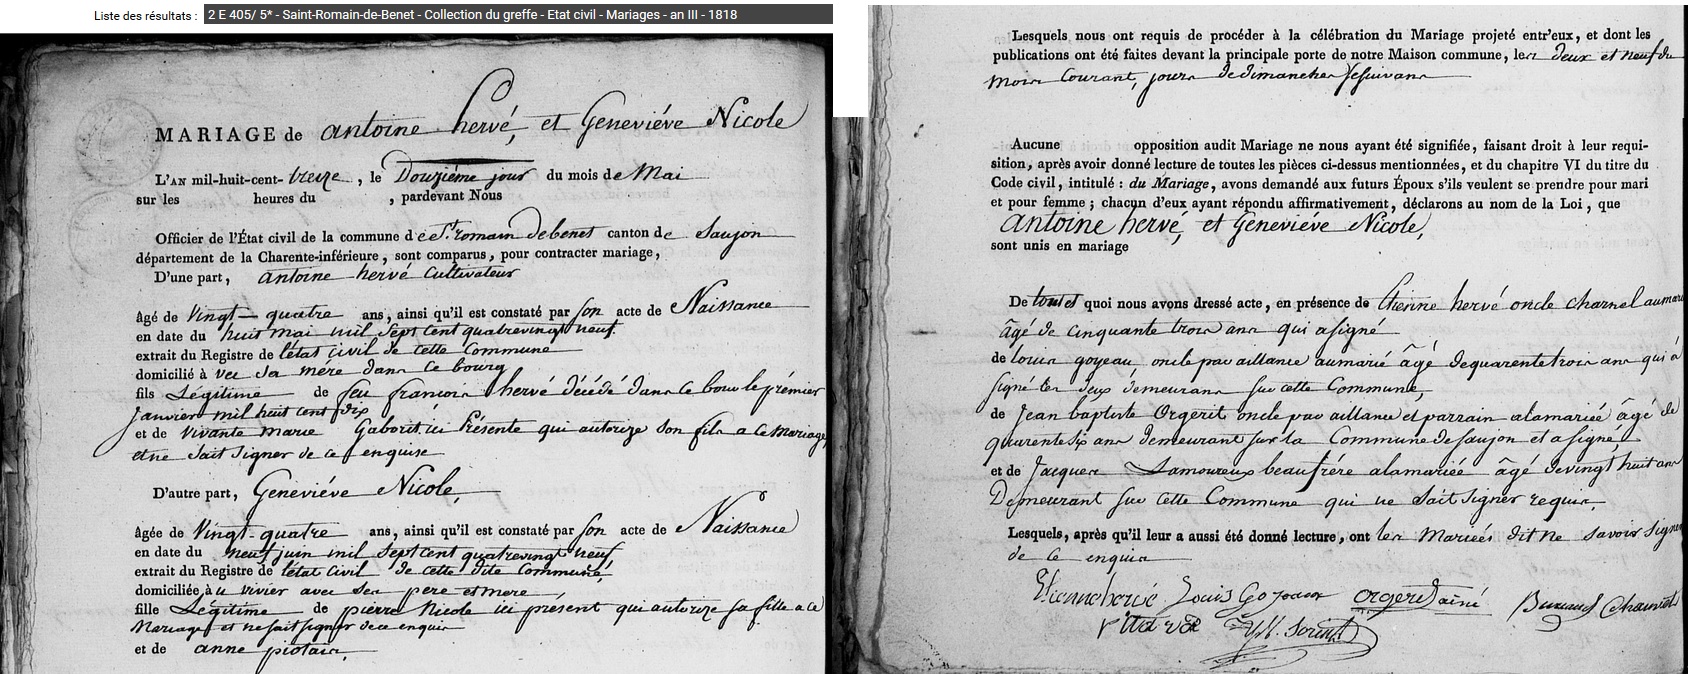 Liste des résultats : 2 E 405/ 5* - Saint-Romain-de-Benet - Collection du greffe - Etat civil - Mariages - an III - 1818
MARIAGE de antoine hervé, et Geneviéve Nicole
L'AN mil-huit-cent-treize, le Douziéme jour du mois de Mai
sur les heures du , pardevant Nous
Officier de l'État civil de la commune de St. romain de benet canton de Saujon
département de la Charente-inférieure, sont comparus, pour contracter mariage,
D'une part, antoine hervé Cultivateur
âgé de Vingt-quatre ans, ainsi qu'il est constaté par son acte de Naissance
en date du huit mai mil sept cent quatrevingt neuf
extrait du Registre de l'état civil de cette Commune
domicilié à vec sa mére dans ce bourg
fils Légitime de feu francois hervé décédé dans ce bour le prémier
Janvier mil huit cent dix
et de Vivante marie Gaborit ici Présente qui autorize son fils a ce Mariage,
et ne sait signer de ce enquise
D'autre part, Geneviéve Nicole,
âgée de Vingt-quatre ans, ainsi qu'il est constaté par son acte de Naissance
en date du neuf juin mil sept cent quatrevingt neuf
extrait du Registre de l'état Civil de cette dite Commune,
domiciliée au vivier avec ses pere et mere
fille Légitime de pierre Nicole ici présent qui autorize sa fille a ce
Mariage et ne sait signer de ce enquis
et de anne piotais,
Lesquels nous ont requis de procéder à la célébration du Mariage projeté entr'eux, et dont les
publications ont été faites devant la principale porte de notre Maison commune, les deux et neuf du
mois Courant, jours de dimanches
Aucune opposition audit Mariage ne nous ayant été signifiée, faisant droit à leur requi-
sition, après avoir donné lecture de toutes les pièces ci-dessus mentionnées, et du chapitre VI du titre du
Code civil, intitulé : du Mariage, avons demandé aux futurs Époux s'ils veulent se prendre pour mari
et pour femme ; chacun d'eux ayant répondu affirmativement, déclarons au nom de la Loi, que
antoine hervé, et Geneviéve Nicole,
sont unis en mariage
De tout et quoi nous avons dressé acte, en présence de Etienne hervé oncle charnel au marié
âgé de cinquante trois ans qui a signé
de louis goyeau, oncle par aillance au marié âgé de quarente trois ans qui à
signé les deux demeurans sur cette Commune,
de Jean baptiste Orgerit oncle par aillance et parrain a la mariée âgé de
quarente six ans demeurant sur la Commune de saujon et a signé
et de Jacques Lamoureux beaufrére a la mariée âgé de vingt huit ans
Demeurant sur cette Commune qui ne sait signer requis.
Lesquels, après qu'il leur a aussi été donné lecture, ont les Mariés dit ne savoir signer
de ce enquis
Etienne hervé Louis Gojeaux orgerit ainé